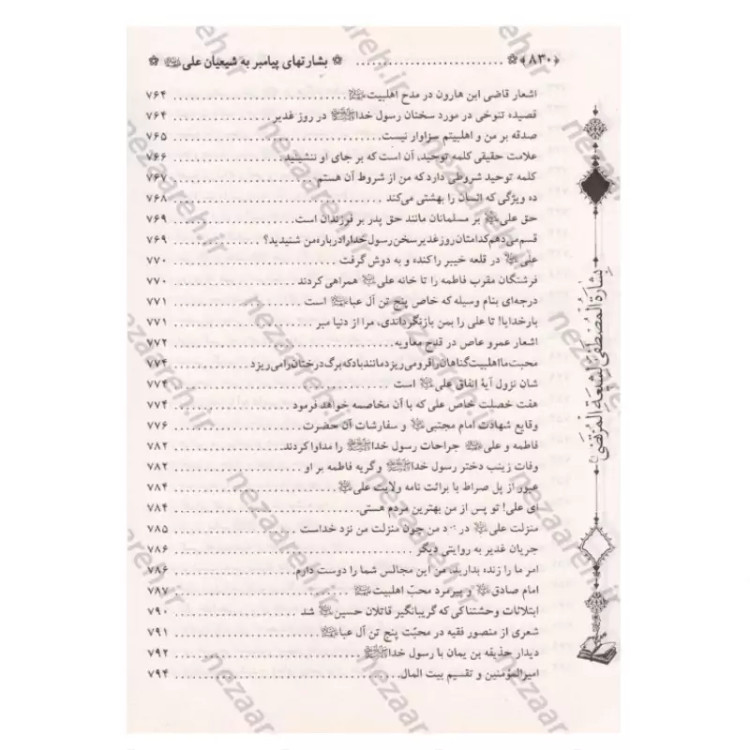 ﴿۸۳۰﴾ ❁ .......................... ❁ بشارتهای پیامبر به شیعیان علی؏ ❁
اشعار قاضی ابن هارون در مدح اهلبیت؏ .................. ۷۶۴
قصیده تنوخی در مورد سخنان رسول خداﷺ در روز غدیر .......... ۷۶۴
صدقه بر من و اهلبیتم سزاوار نیست .................. ۷۶۵
علامت حقیقی کلمه توحید، آن است که بر جای او ننشینید .......... ۷۶۶
کلمه توحید شروطی دارد که من از شروط آن هستم .......... ۷۶۷
ده ویژگی که انسان را بهشتی می‌کند .................. ۷۶۸
حق علی؏ بر مسلمانان مانند حق پدر بر فرزندان است .......... ۷۶۹
قسم می‌دهم کدامتان روز غدیر سخن رسول خدا را درباره من شنیدید؟ .......... ۷۶۹
علی؏ در قلعه خیبر را کنده و به دوش گرفت .......... ۷۷۰
فرشتگان مقرب فاطمه را تا خانه علی؏ همراهی کردند .......... ۷۷۰
درجه‌ای بنام وسیله که خاص پنج تن آل عبا؏ است .......... ۷۷۱
بارخدایا! تا علی را بمن بازنگرداندی، مرا از دنیا مبر .......... ۷۷۱
اشعار عمرو عاص در قدح معاویه .................. ۷۷۲
محبت ما اهلبیت گناهان را فرو می‌ریزد مانند باد که برگ درختان را می‌ریزد
شان نزول آیهٔ انفاق علی؏ است .................. ۷۷۴
هفت خصلت خاص علی که با آن مخاصمه خواهد فرمود .......... ۷۷۴
وقایع شهادت امام مجتبی؏ و سفارشات آن حضرت .......... ۷۷۶
فاطمه و علی؏ جراحات رسول خداﷺ را مداوا کردند .......... ۷۸۲
وفات زینب دختر رسول خداﷺ و گریه فاطمه بر او .......... ۷۸۲
عبور از پل صراط با برائت نامه ولایت علی؏ .......... ۷۸۴
ای علی! تو پس از من بهترین مردم هستی .................. ۷۸۴
منزلت علی؏ در نزد من چون منزلت من نزد خداست .......... ۷۸۵
جریان غدیر به روایتی دیگر .................. ۷۸۶
امر ما را زنده بدارید، من این مجالس شما را دوست دارم .......... ۷۸۶
امام صادق؏ و پیرمرد محبّ اهلبیت؏ .................. ۷۸۷
ابتلائات وحشتناکی که گریبانگیر قاتلان حسین؏ شد .......... ۷۹۰
شعری از منصور فقیه در محبّت پنج تن آل عبا؏ .......... ۷۹۱
دیدار حذیفه بن یمان با رسول خدا؏ .................. ۷۹۲
امیرالمؤمنین و تقسیم بیت المال .................. ۷۹۴
بِشارَةُ المُصطَفی لِشیعَةِ المُرتَضی
nezaareh.ir